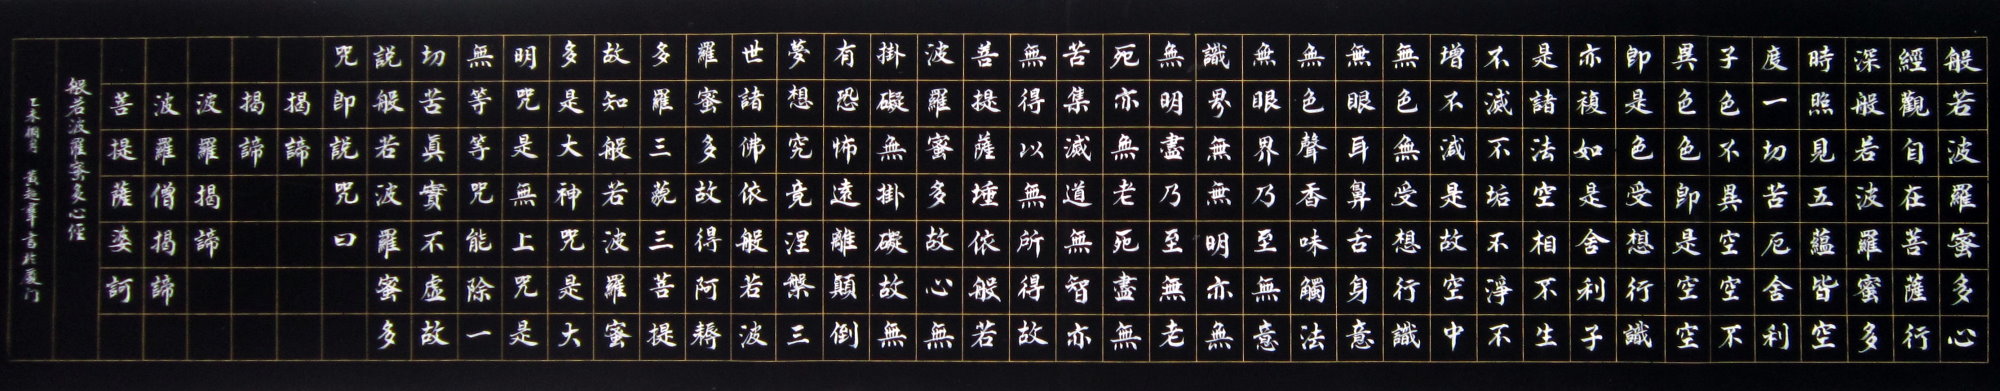 般若波羅蜜多心
經觀自在菩薩行
深般若波羅蜜多
時照見五蘊皆空
度一切苦厄舍利
子色不異空空不
異色色即是空空
即是色受想行識
亦複如是舍利子
是諸法空相不生
不滅不垢不淨不
增不減是故空中
無色無受想行識
無眼耳鼻舌身意
無色聲香味觸法
無眼界乃至無意
識界無無明亦無
無明盡乃至無老
死亦無老死盡無
苦集滅道無智亦
無得以無所得故
菩提薩埵依般若
波羅蜜多故心無
掛礙無掛礙故無
有恐怖遠離顛倒
夢想究竟涅槃三
世諸佛依般若波
羅蜜多故得阿耨
多羅三藐三菩提
故知般若波羅蜜
多是大神咒是大
明咒是無上咒是
無等等咒能除一
切苦真實不虛故
說般若波羅蜜多
咒即說咒曰
揭諦
揭諦
波羅揭諦
波羅僧揭諦
菩提薩婆訶
般若波羅蜜多心經
乙未桐月 書於厦门